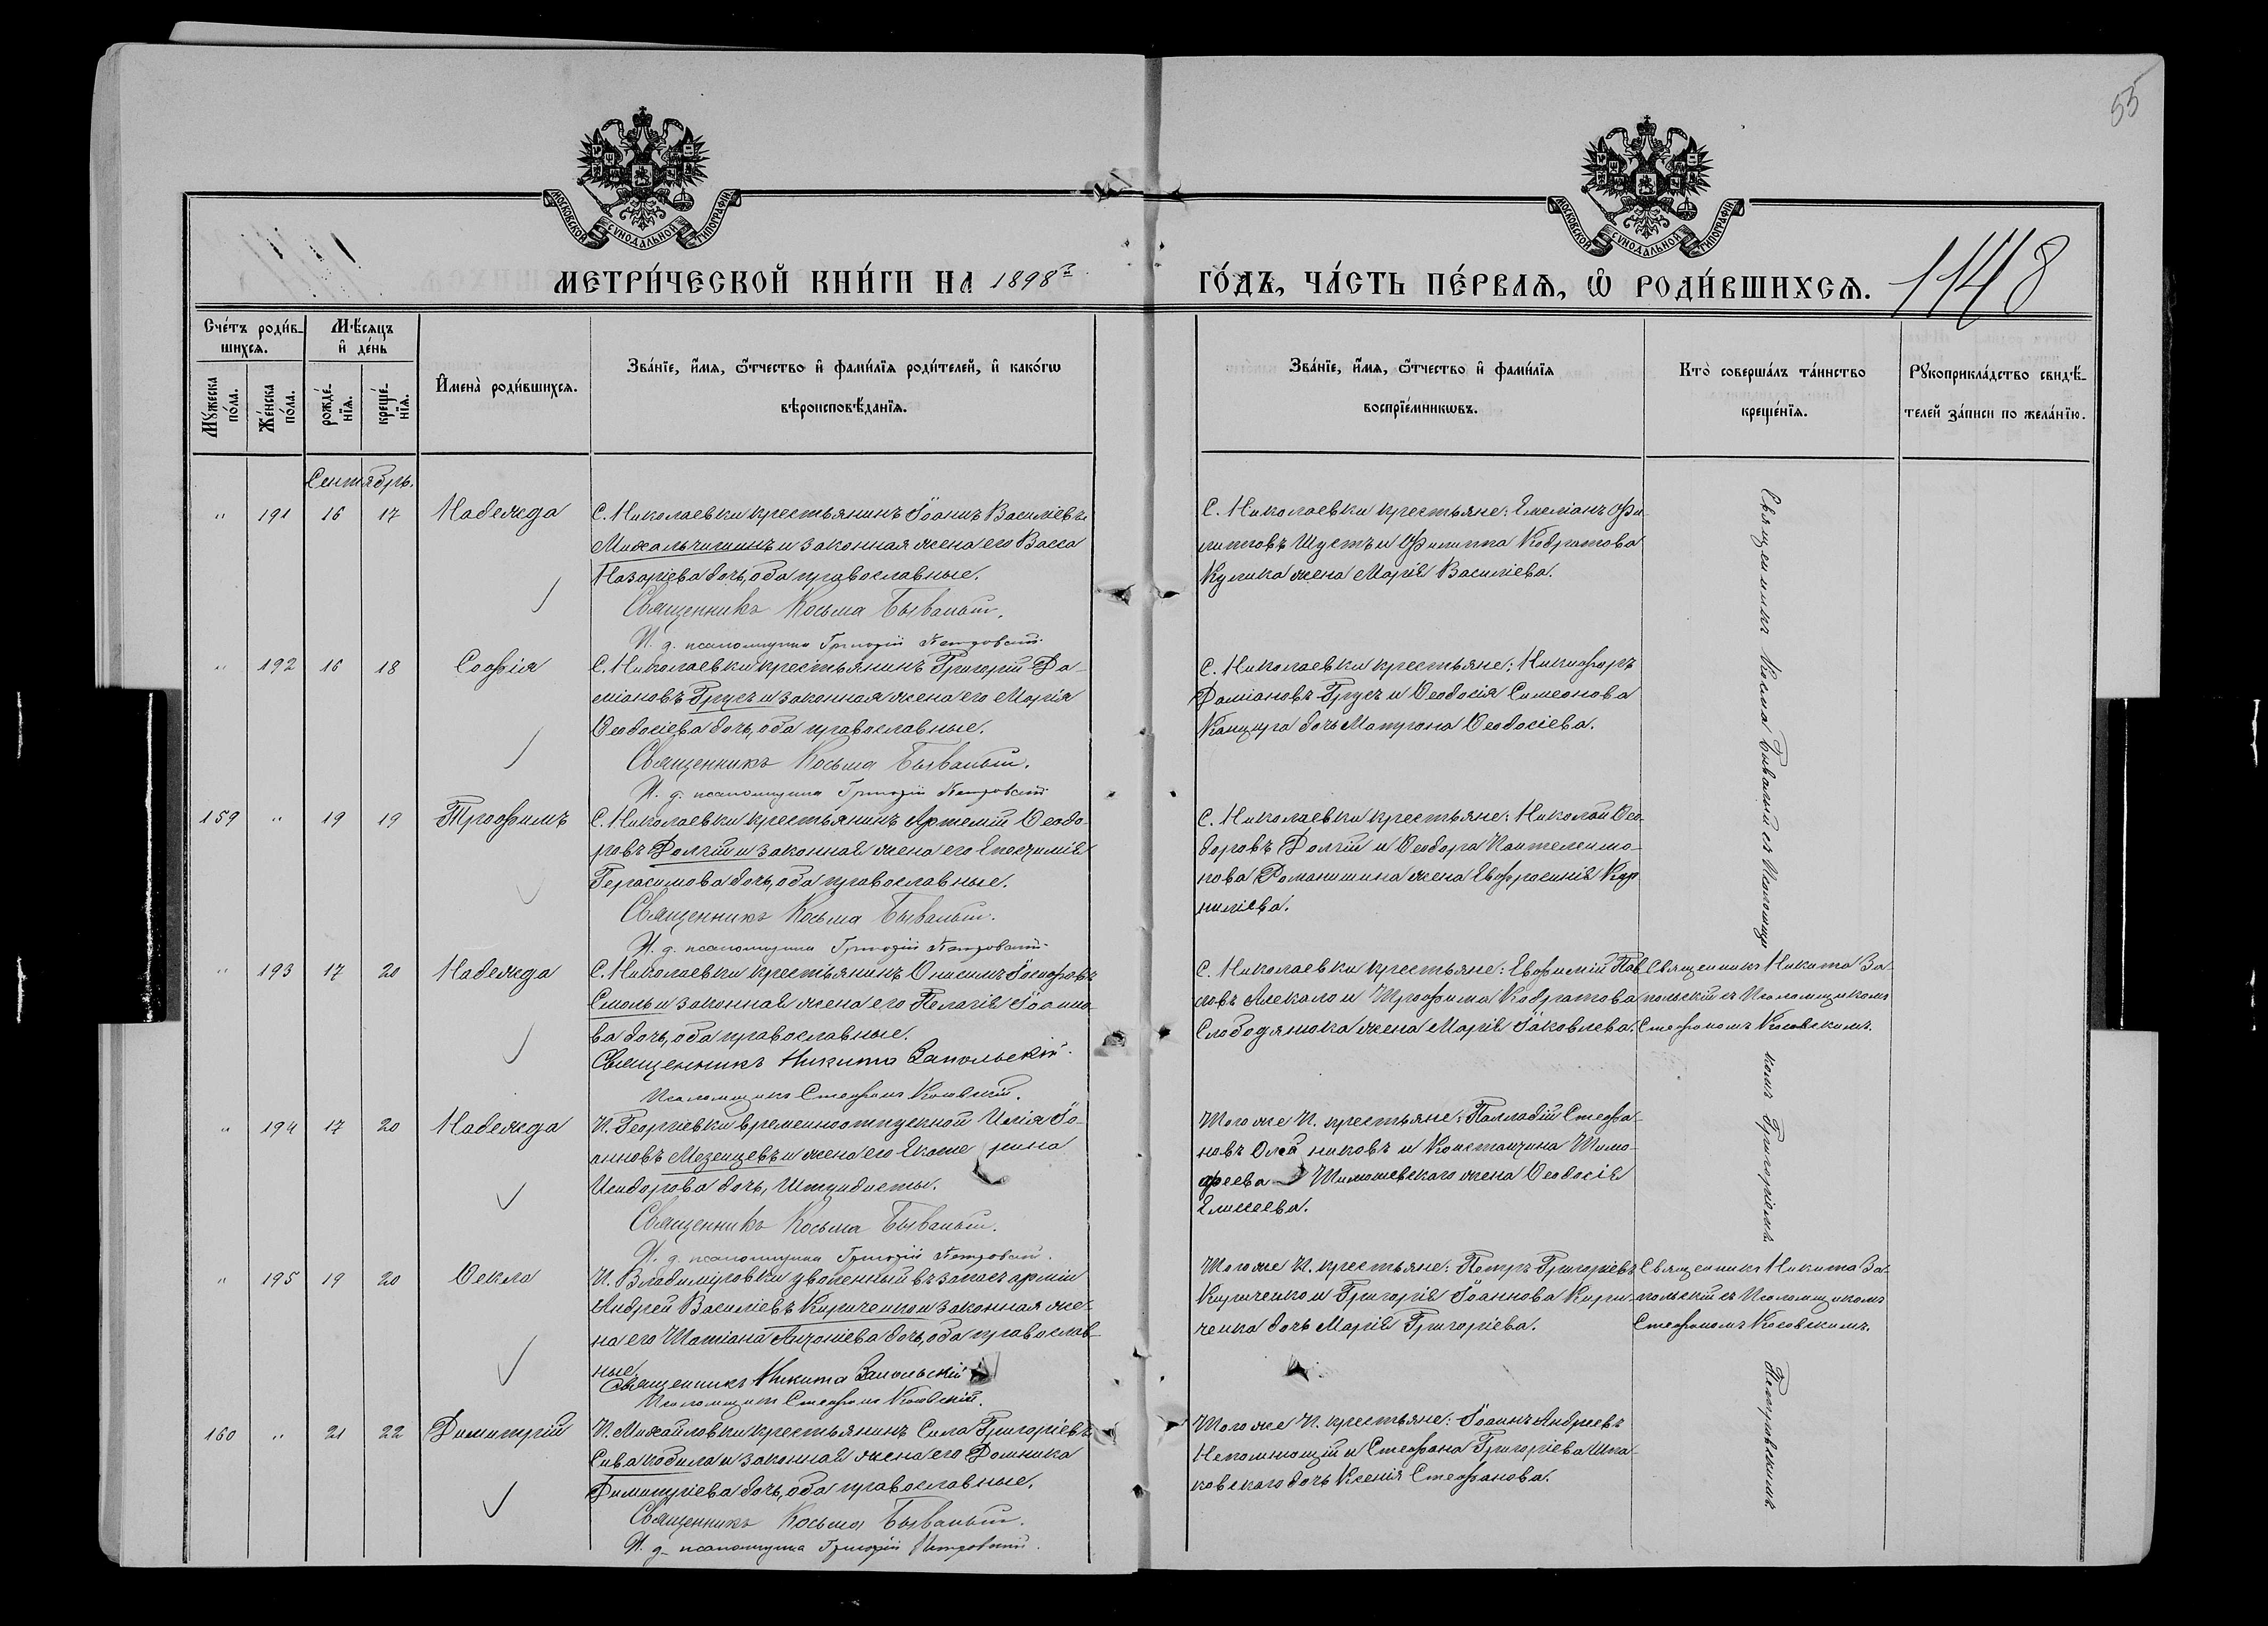 55
МОСКОВСКОЙ СѴНОДАЛЬНОЙ ТИПОГРАФІИ.
МОСКОВСКОЙ СѴНОДАЛЬНОЙ ТИПОГРАФІИ.
МЕТРИ́ЧЕСКОЙ КНИ́ГИ НА 1898 й
ГО́ДЪ, ЧА́СТЬ ПЕ́РВАѦ, Ѽ РОДИ́ВШИХСѦ.
1148
Сче́тъ роди́в-
шихсѧ.
Мѣ́сѧцъ
и҆ де́нь
Мꙋ́жеска
по́ла.
Же́нска
по́ла.
рожде́-
нїѧ.
креще́-
нїѧ.
И҆мена̀ роди́вшихсѧ.
Зва́нїе, и҆́мѧ, ѻ҆́тчество и҆ фами́лїѧ роди́телей, и҆ како́гѡ
вѣроисповѣ́данїѧ.
Зва́нїе, и҆́мѧ, ѻ҆́тчество и҆ фами́лїѧ
воспрїе́мникѡвъ.
Кто̀ соверша́лъ та́инство
креще́нїѧ.
Рꙋкоприкла́дство свидѣ́-
телей за́писи по жела́нїю.
Сентябрь.
" 191 16 17 Надежда
С. Николаевки крестьянинъ Іоаннъ Василіевъ
Михальчишинъ и законная жена его Васса
Назаріева дочь, оба православные.
Священникъ Косьма Бывалый.
И. д. псаломщика Григорій Петровскій.
С. Николаевки крестьяне: Емеліанъ Фи-
липповъ Шустъ и Филиппа Кодратова
Кулика жена Марія Василіева.
" 192 16 18 Софія
С. Николаевки крестьянинъ Григорій Да-
міановъ Грусъ и законная жена его Марія
Ѳеодосіева дочь, оба православные.
Священникъ Косьма Бывалый.
И. д. псаломщика Григорій Петровскій
С. Николаевки крестьяне: Никифоръ
Даміановъ Грусъ и Ѳеодосія Симеонова
Канцура дочь Матрона Ѳеодосіева.
159 " 19 19 Трофимъ
С. Николаевки крестьянинъ Артемій Ѳеодо-
ровъ Долгій и законная жена его Епистимія
Герасимова дочь, оба православные.
Священникъ Косьма Бывалый.
И. д. псаломщика Григорій Петровскій.
С. Николаевки крестьяне: Николай Ѳео-
доровъ Долгій и Ѳеодора Пантелеимо-
нова Романишина жена Евфросинія Кор-
ниліева.
" 193 17 20 Надежда
С. Николаевки крестьянинъ Онисимъ Іосифовъ
Смоль и законная жена его Пелагія Іоанно-
ва дочь, оба православные.
Священникъ Никита Запольскій.
Псаломщикъ Стефанъ Косовскій.
С. Николаевки крестьяне: Евфимій Пав-
ловъ Алекало и Трофима Кодратова
Слободянюка жена Марія Іаковлева.
Священникъ Никита За-
польскій съ Псаломщикомъ
Стефаномъ Косовскимъ.
" 194 17 20 Надежда
П. Георгіевки временноотпускной Илія Іо-
анновъ Мезенцевъ и жена его Екате рина
Исидорова дочь, Штундисты.
Священникъ Косьма Бывалый.
И. д. псаломщика Григорій Петровскій.
Того же П. крестьяне: Палладій Стефа-
новъ Олей никовъ и Константина Тимо-
феева Тимошевскаго жена Ѳеодосія
Елисеева.
" 195 19 20 Ѳекла
П. Владиміровки уволенный въ запасъ арміи
Андрей Василіевъ Кириченко и законная же-
на его Татіана Антоніева дочь, оба православ-
ные.
Священникъ Никита Запольскій
Псаломщикъ Стефанъ Косовскій.
Того же П. крестьяне: Петръ Григоріевъ
Кириченко и Григорія Іоаннова Кири-
ченка дочь Марія Григоріева.
Священникъ Никита За-
польскій съ Псаломщикомъ
Стефаномъ Косовскимъ.
160 " 21 22 Димитрій
П. Михайловки крестьянинъ Сила Григоріевъ
Сивакобила и законная жена его Домника
Димитріева дочь, оба православные.
Священникъ Косьма Бывалый.
И. д. псаломщика Григорій Петровскій.
Того же П. крестьяне: Іоаннъ Андреевъ
Непомнющій и Стефана Григоріева Шпа-
ковскаго дочь Ксенія Стефанова.
Священникъ Косма Бывалый съ Псаломщи-
комъ Григоріемъ
Петровскимъ.